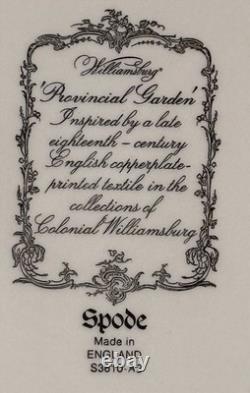 Williamsburg®
'Provincial Garden'
Inspired by a late
eighteenth - century
English copperplate-
printed textile in the
collections of
Colonial Williamsburg
Spode
Made in
ENGLAND
ebay